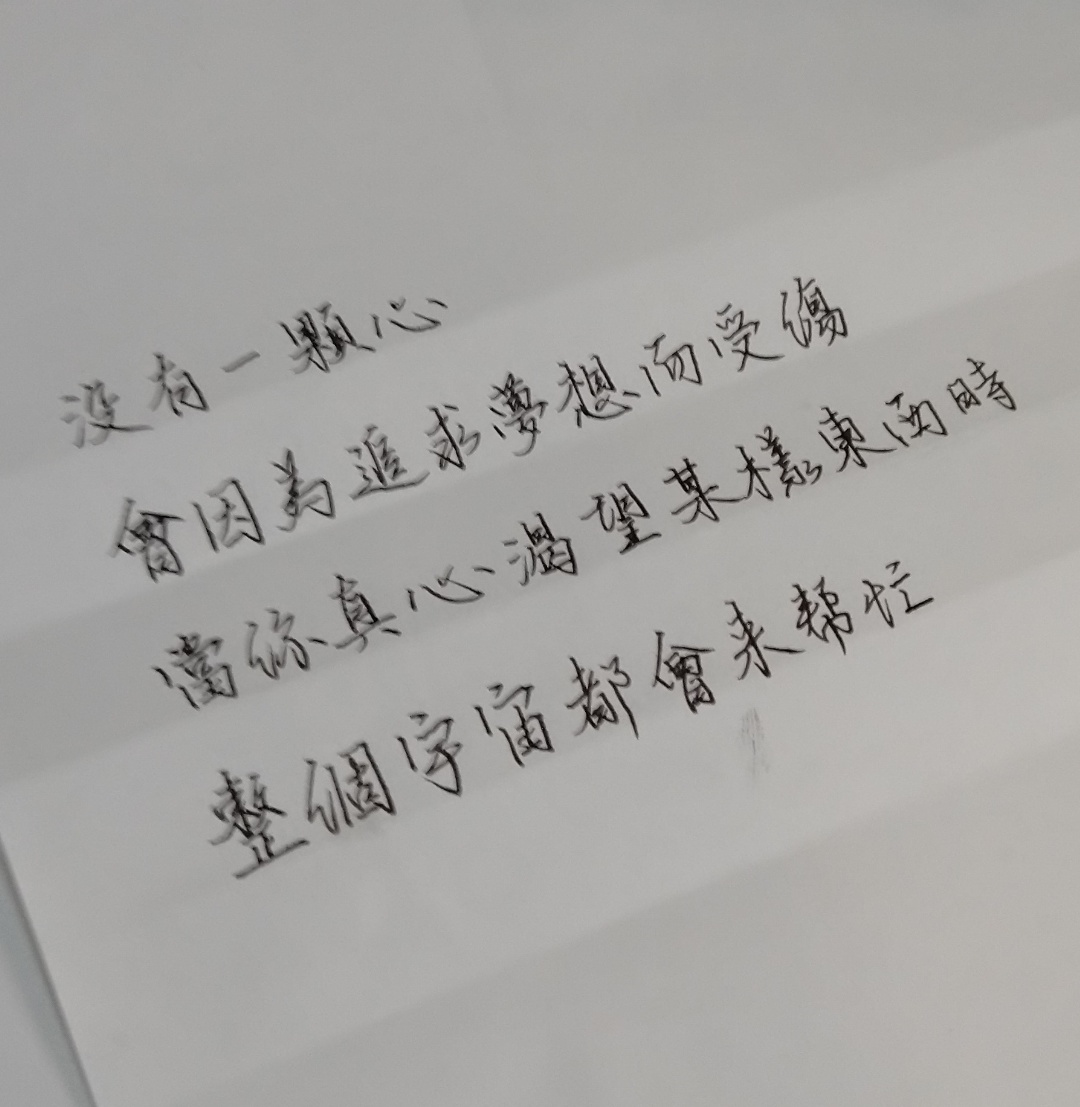 没有一顆心
會因為追求夢想而受傷
當你真心渴望某樣東西時
整個宇宙都會来幇忙